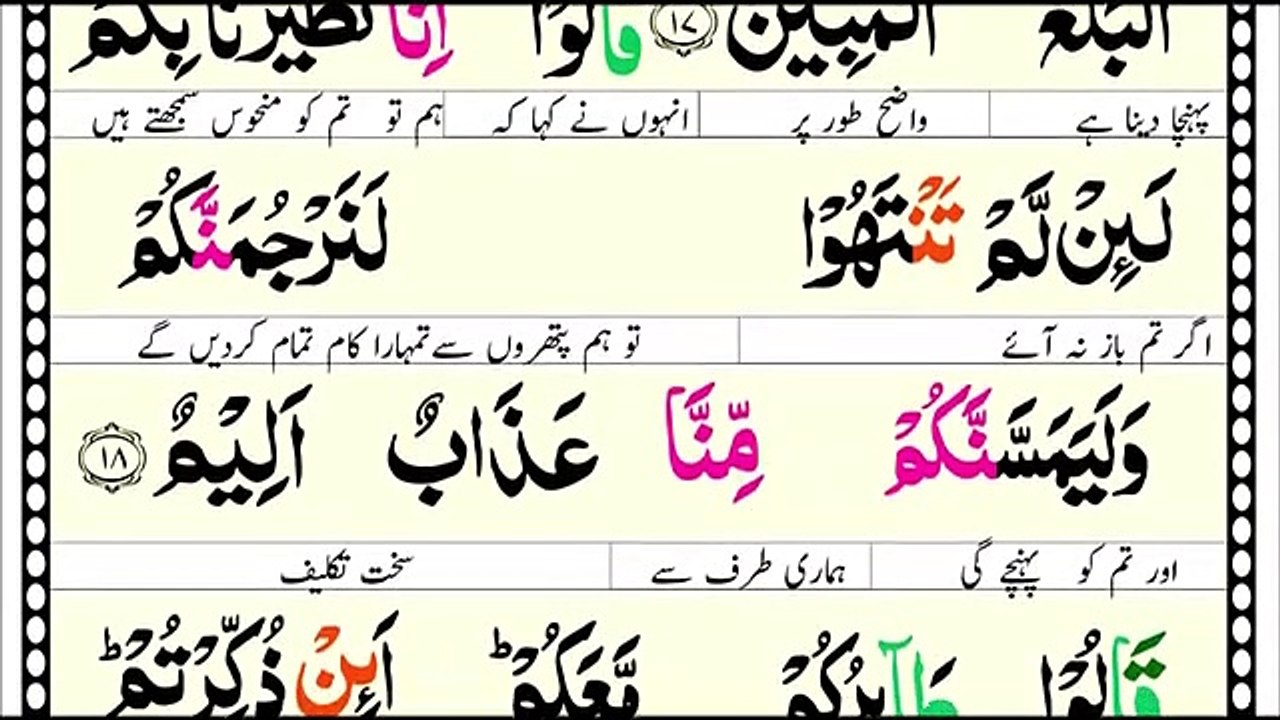 الْبَلٰغُ الْمُبِیْنُ ١٧ قَالُوْۤا اِنَّا تَطَیَّرْنَا بِكُمْ
پہنچا دینا ہے واضح طور پر انہوں نے کہا کہ ہم تو تم کو منحوس سمجھتے ہیں
لَىِٕنْ لَّمْ تَنْتَهُوْا لَنَرْجُمَنَّكُمْ
اگر تم باز نہ آئے تو ہم پتھروں سے تمہارا کام تمام کردیں گے
وَلَیَمَسَّنَّكُمْ مِّنَّا عَذَابٌ اَلِیْمٌ ١٨
اور تم کو پہنچے گی ہماری طرف سے سخت تکلیف
قَالُوْا طَآىِٕرُكُمْ مَّعَكُمْ ؕ اَىِٕنْ ذُكِّرْتُمْ ؕ